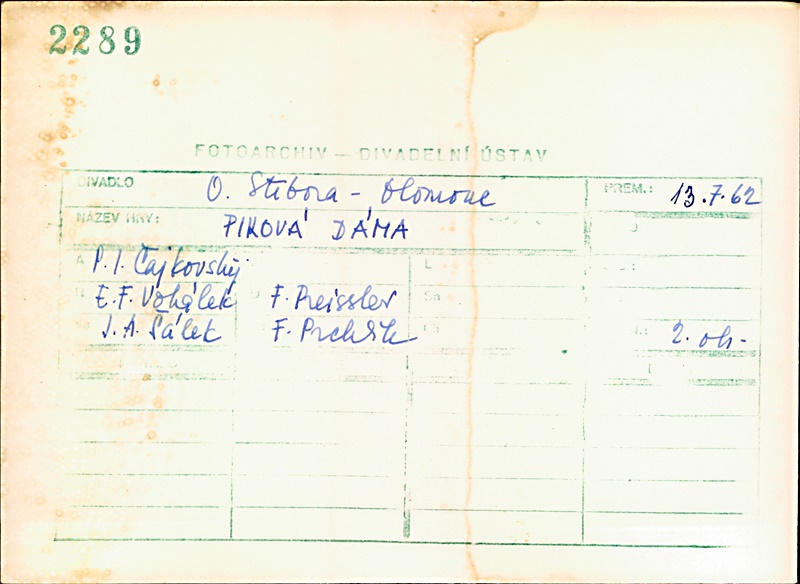 2289
FOTOARCHIV — DIVADELNÍ ÚSTAV
DIVADLO O. Stibora - Olomouc PREM.: 13.7.62
NÁZEV HRY: PIKOVÁ DÁMA
A P. I. Čajkovský L
E. F. Vokálek F. Preissler
J. A. Šálek F. Prchlík 2. ob.